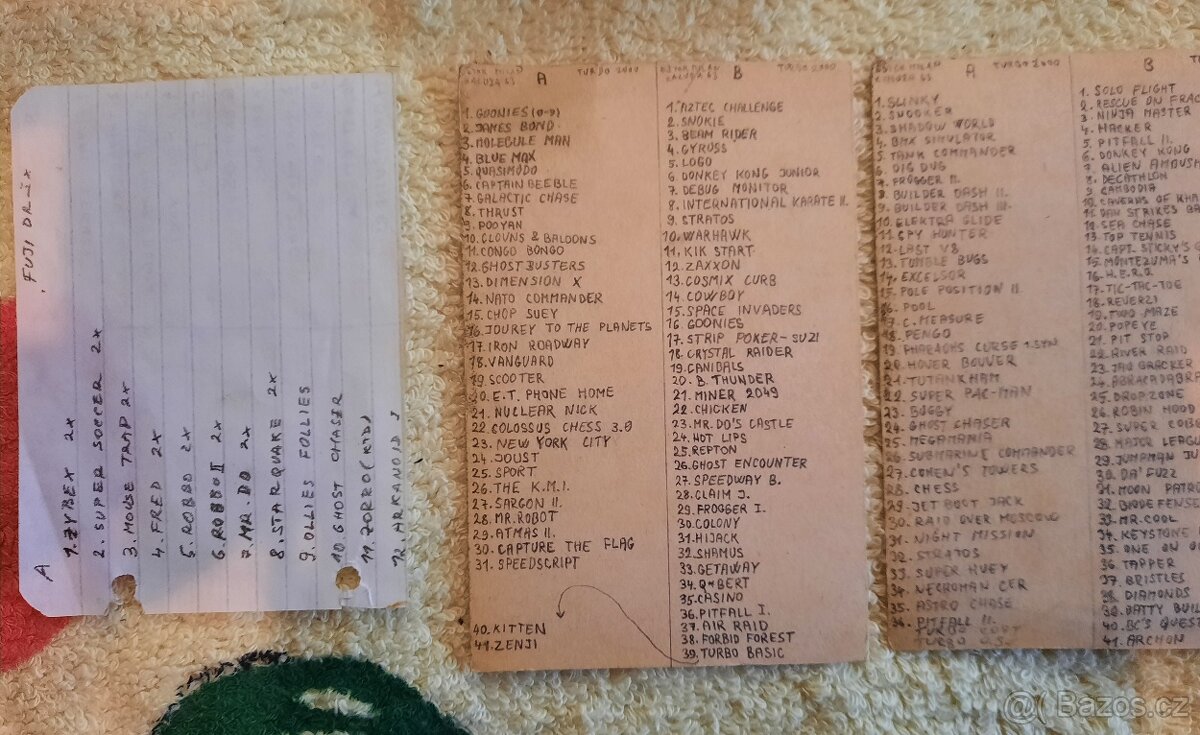 FUJI DR-2x
A
1. ZYBEX 2x
2. SUPER SOCCER 2x
3. MOUSE TRAP 2x
4. FRED 2x
5. ROBBO 2x
6. ROBBO II 2x
7. MR. DO 2x
8. STAR QUAKE 2x
9. OLLIES FOLLIES
10. GHOST CHASER
11. ZORRO
12. ARKANOID
A TURBO 2000
1. GOONIES
2. JAMES BOND
3. MOLECULE MAN
4. BLUE MAX
5. QUASIMODO
6. CAPTAIN BEEBLE
7. GALACTIC CHASE
8. THRUST
9. POOYAN
10. CLOVNS & BALOONS
11. CONGO BONGO
12. GHOST BUSTERS
13. DIMENSION X
14. NATO COMMANDER
15. CHOP SUEY
16. JOUREY TO THE PLANETS
17. IRON ROADWAY
18. VANGUARD
19. SCOOTER
20. E.T. PHONE HOME
21. NUCLEAR NICK
22. COLOSSUS CHESS 3.0
23. NEW YORK CITY
24. JOUST
25. SPORT
26. THE K.M.I.
27. SARGON II.
28. MR. ROBOT
29. ATMAS II.
30. CAPTURE THE FLAG
31. SPEEDSCRIPT
40. KITTEN
41. ZENJI
B TURBO 2000
1. AZTEC CHALLENGE
2. SNOKIE
3. BEAM RIDER
4. GYROSS
5. LOGO
6. DONKEY KONG JUNIOR
7. DEBUG MONITOR
8. INTERNATIONAL KARATE II.
9. STRATOS
10. WARHAWK
11. KIK START
12. ZAXXON
13. COSMIX CURB
14. COWBOY
15. SPACE INVADERS
16. GOONIES
17. STRIP POKER - SUZI
18. CRYSTAL RAIDER
19. CANIBALS
20. B. THUNDER
21. MINER 2049
22. CHICKEN
23. MR. DO'S CASTLE
24. HOT LIPS
25. REPTON
26. GHOST ENCOUNTER
27. SPEEDWAY B.
28. CLAIM J.
29. FROGGER I.
30. COLONY
31. HIJACK
32. SHAMUS
33. GETAWAY
34. Q*BERT
35. CASINO
36. PITFALL I.
37. AIR RAID
38. FORBID FOREST
39. TURBO BASIC
A TURBO 2000
1. SLINKY
2. SNOOKER
3. SHADOW WORLD
4. BMX SIMULATOR
5. TANK COMMANDER
6. DIG DUG
7. FROGGER II.
8. BUILDER DASH II.
9. BUILDER DASH III.
10. ELEKTRA GLIDE
11. SPY HUNTER
12. LAST V8
13. TUMBLE BUGS
14. EXCELSOR
15. POLE POSITION II
16. POOL
17. C. MEASURE
18. PENGO
19. PHAEAOHS CURSE 1.SYN
20. HOVER BOUVER
21. TUTANKHAM
22. SUPER PAC-MAN
23. BUGGY
24. GHOST CHASER
25. MEGAMANIA
26. SUBMARINE COMMANDER
27. COHEN'S TOWERS
28. CHESS
29. JET BOOT JACK
30. RAID OVER MOSCOW
31. NIGHT MISSION
32. STRATOS
33. SUPER HUEY
34. NECROMAN CER
35. ASTRO CHASE
36. PITFALL II.
B
1. SOLO FLIGHT
2. RESCUE ON FRAC
3. NINJA MASTER
4. HACKER
5. PITFALL II.
6. DONKEY KONG
7. ALIEN AMBUSH
8. DECATHLON
9. CAMBODIA
10. CAVERNS OF KHA
11. DAN STRIKES BA
12. SEA CHASE
13. TOP TENNIS
14. CAPT. STICKY'S
15. MONTEZUMA'S
16. H.E.R.O.
17. TIC-TAC-TOE
18. REVERZI
19. TWO MAZE
20. POPEYE
21. PIT STOP
22. RIVER RAID
23. JAW CRACKER
24. ABRACADABRA
25. DROP ZONE
26. ROBIN HOOD
27. SUPER COB
28. MAJOR LEAGU
29. JUMPMAN JU
30. DA'FUZZ
31. MOON PATRO
32. BLADE FENSE
33. MR. COOL
34. KEYSTONE
35. ONE ON O
36. TAPPER
37. BRISTLES
38. DIAMONDS
39. BATTY BUIL
40. BC'S QUEST
41. ARCHON
Bazos.cz